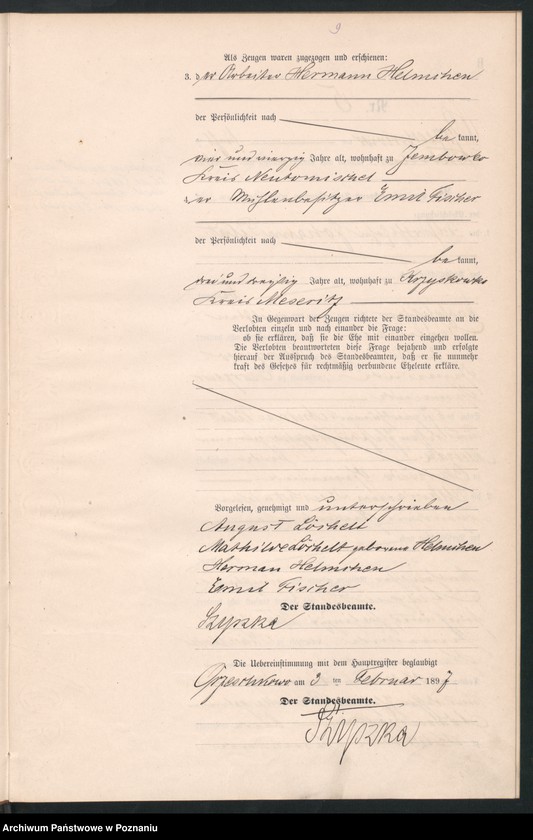 9
Als Zeugen waren zugezogen und erschienen:
3. der Arbeiter Hermann Helmchen
der Persönlichkeit nach
be kannt,
vier und vierzig Jahre alt, wohnhaft zu Zembowko
Kreis Neutomischel
4. der Mühlenbesitzer Emil Fischer
der Persönlichkeit nach
be kannt,
drei und dreißig Jahre alt, wohnhaft zu Krzyskowko
Kreis Meseritz
In Gegenwart der Zeugen richtete der Standesbeamte an die
Verlobten einzeln und nach einander die Frage:
ob sie erklären, daß sie die Ehe mit einander eingehen wollen.
Die Verlobten beantworteten diese Frage bejahend und erfolgte
hierauf der Ausspruch des Standesbeamten, daß er sie nunmehr
kraft des Gesetzes für rechtmäßig verbundene Eheleute erkläre.
Vorgelesen, genehmigt und unterschrieben
August
Mathilde geborene Helmchen
Herman Helmchen
Emil Fischer
Der Standesbeamte.
Szypzka
Die Uebereinstimmung mit dem Hauptregister beglaubigt
am 3 ten Februar 1897
Der Standesbeamte.
Szypzka
Archiwum Państwowe w Poznaniu